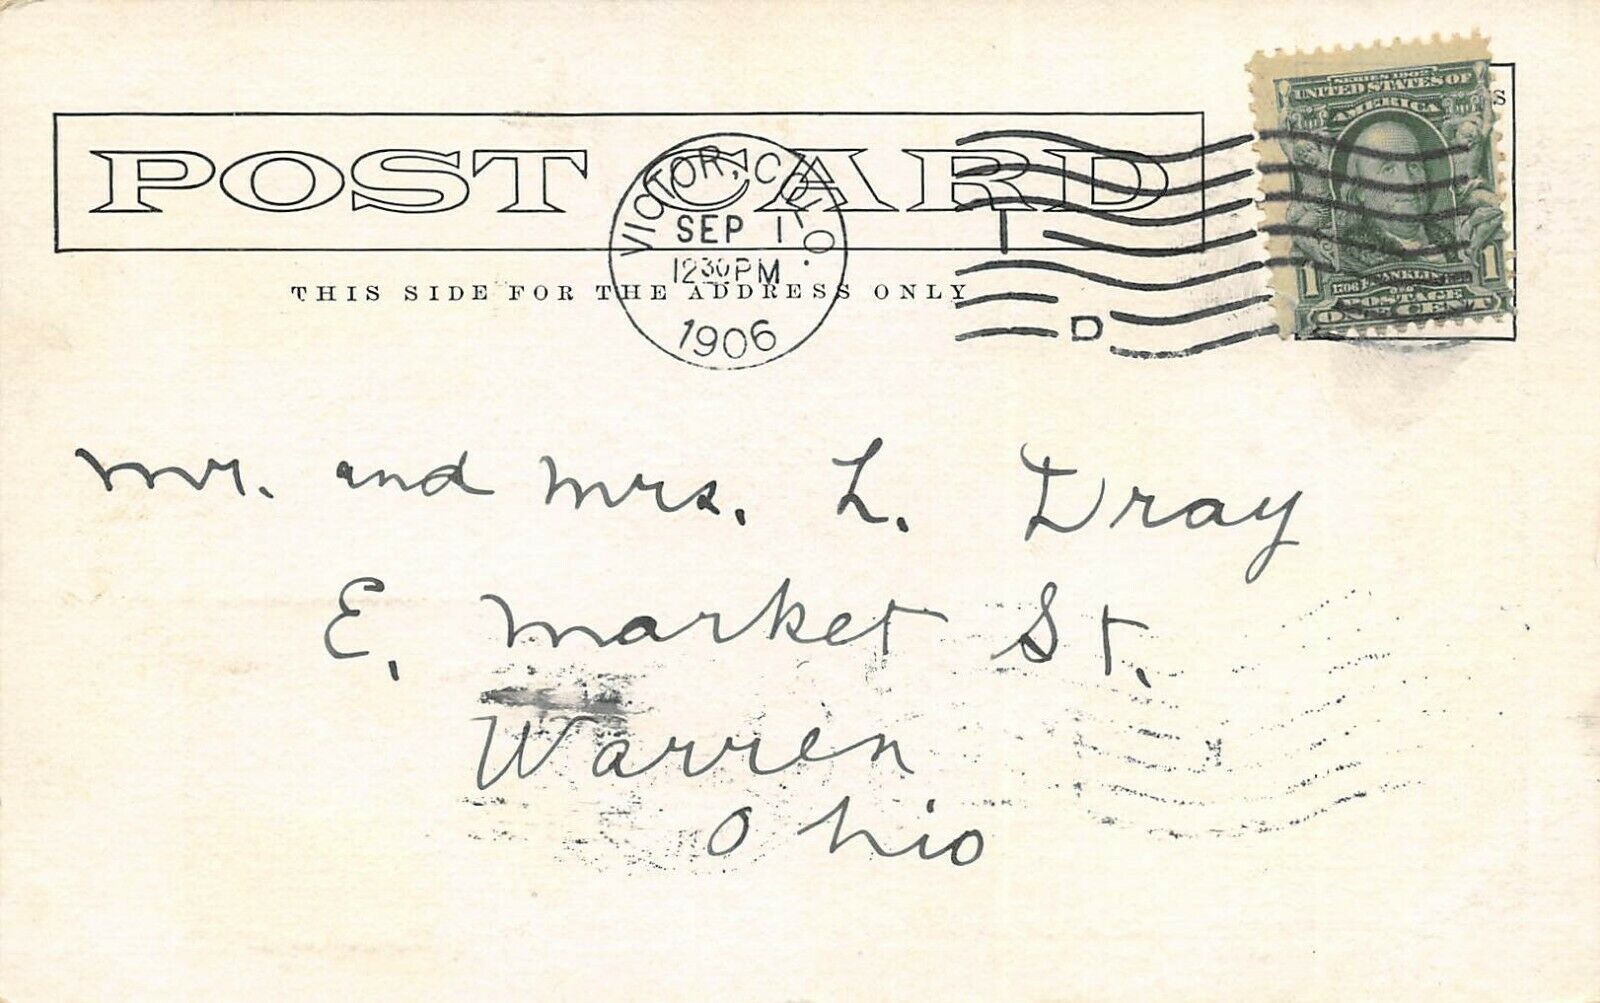 POST CARD
THIS SIDE FOR THE ADDRESS ONLY
VICTOR, COLO.
SEP 1
12 30 PM
1906
I
D
S
SERIES 1902
UNITED STATES OF
AMERICA
1 1706 FRANKLIN 1
POSTAGE
ONE CENT
Mr. and Mrs. L. Dray
E. Market St.
Warren
Ohio